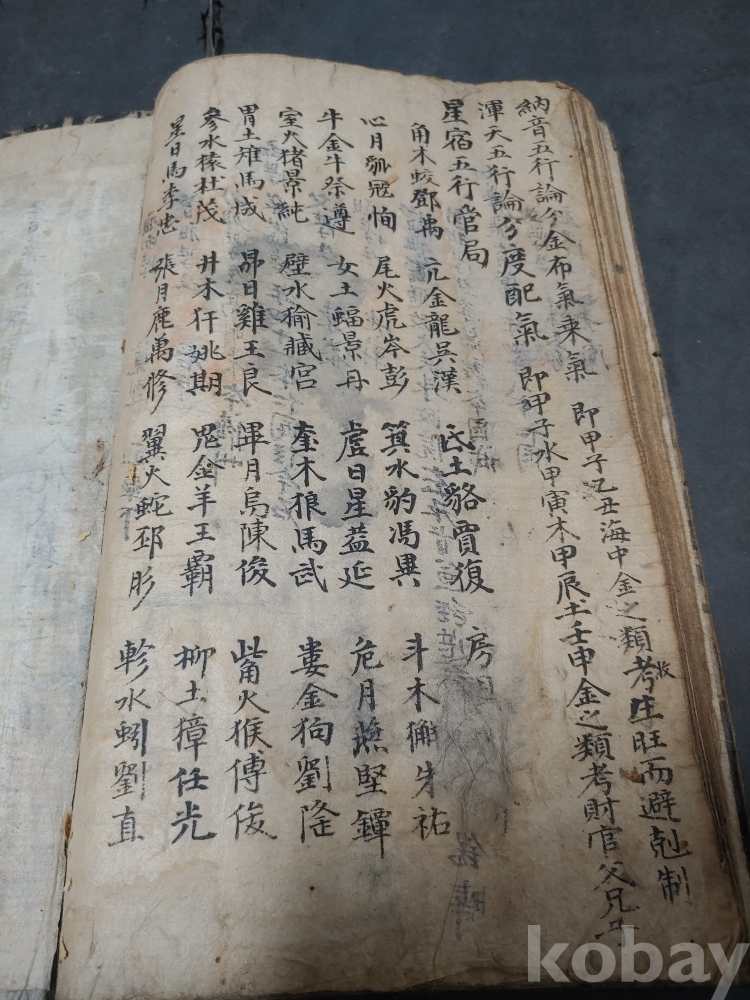 納音五行論分金布氣乘氣 即甲子乙丑海中金之類考收生旺而避剋制
渾天五行論分度配氣 即甲子水甲寅木甲辰土壬申金之類考財官父兄子
星宿五行管局
角木蛟鄧禹 亢金龍吳漢 氐土貉賈復 房日
心月狐寇恂 尾火虎岑彭 箕水豹馮異 斗木獬朱祐
牛金牛祭遵 女土蝠景丹 虛日星盖延 危月燕堅鐔
室火猪景純 壁水㺄臧宮 奎木狼馬武 婁金狗劉隆
胃土雉馬成 昴日雞王良 畢月烏陳俊 觜火猴傅俊
參水猿杜茂 井木犴姚期 鬼金羊王霸 柳土獐任光
星日馬李忠 張月鹿萬修 翼火蛇邳肜 軫水蚓劉直
kobay